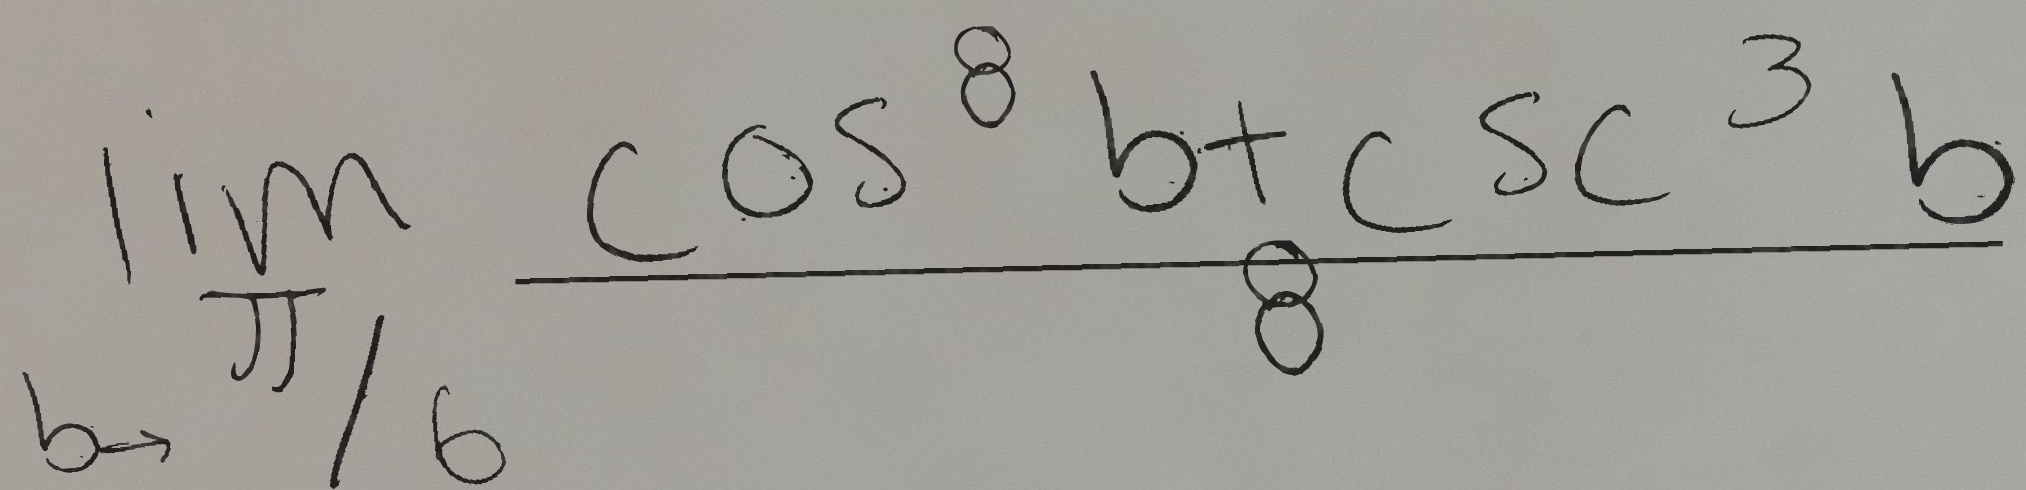 lim_{b→π/6} \frac{cos^8 b+csc^3 b}{8}